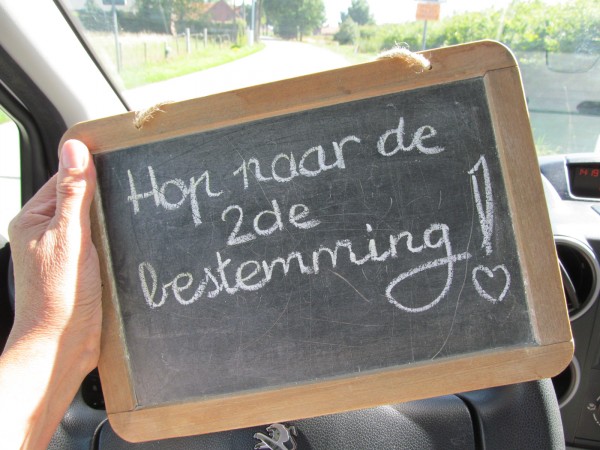 Hop naar de
2de
bestemming!